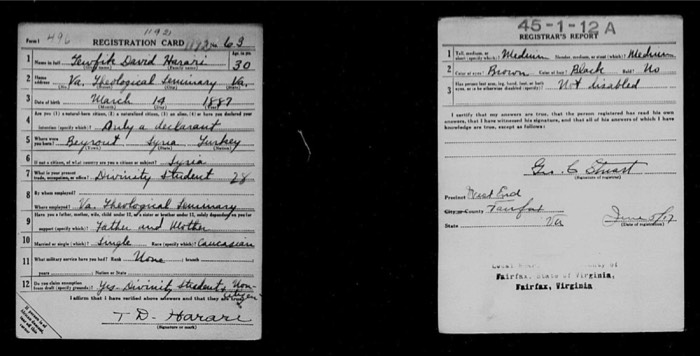 Form 1 496 1192 REGISTRATION CARD 1192 No. 63
1 Name in full Tewfik David Harari Age, in yrs. 30
2 Home address Va. Theological Seminary Va.
3 Date of birth March 14 1887
Are you (1) a natural-born citizen, (2) a naturalized citizen, (3) an alien, (4) or have you declared your
4 intention (specify which)? Only a declarant
5 Where were you born? Beyrout Syria Turkey
6 If not a citizen, of what country are you a citizen or subject? Syria
7 What is your present trade, occupation, or office? Divinity Student 28
8 By whom employed?
Where employed? Va. Theological Seminary
Have you a father, mother, wife, child under 12, or a sister or brother under 12, solely dependent on you for
9 support (specify which)? Father and Mother
10 Married or single (which)? Single Race (specify which)? Caucasian
11 What military service have you had? Rank None branch
years Nation or State
12 Do you claim exemption from draft (specify grounds)? Yes - Divinity Student & Non-citizen
I affirm that I have verified above answers and that they are true.
T. D. Harari
(Signature or mark)
45-1-12 A
REGISTRAR'S REPORT
1 Tall, medium, or short (specify which)? Medium Slender, medium, or stout (which)? Medium
2 Color of eyes? Brown Color of hair? Black Bald? No
3 Has person lost arm, leg, hand, foot, or both eyes, or is he otherwise disabled (specify)? Not disabled
I certify that my answers are true, that the person registered has read his own
answers, that I have witnessed his signature, and that all of his answers of which I have
knowledge are true, except as follows:
Geo. C. Stuart
(Signature of registrar)
Precinct West End
City or County Fairfax
State Va June 5/17
(Date of registration)
Local Board
Fairfax, State of Virginia,
Fairfax, Virginia